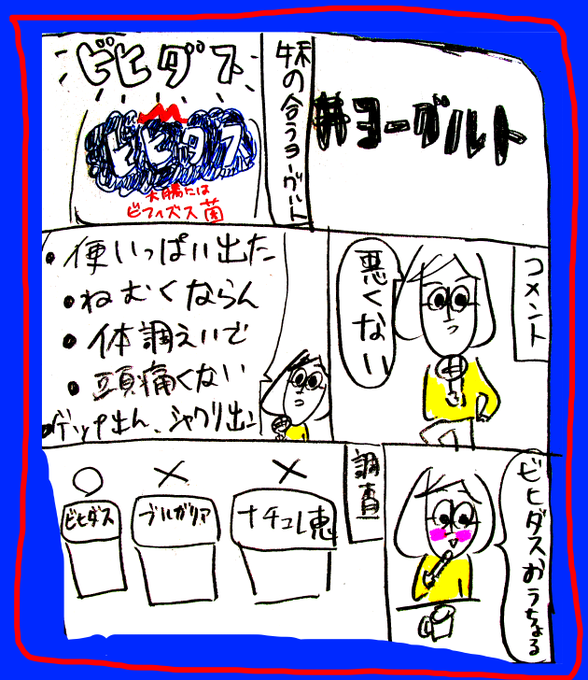 #ヨーグルト
私の合うヨーグルト
ビヒダス
ビヒダス
大腸には
ビフィズス菌
コメント
悪くない
・便いっぱい出た
・ねむくならん
・体調えいで
・頭痛くない
・ゲップ出ん、シャクリ出ン
ビヒダスおうちょる
調査
○ × ×
ビヒダス ブルガリア ナチュレ恵